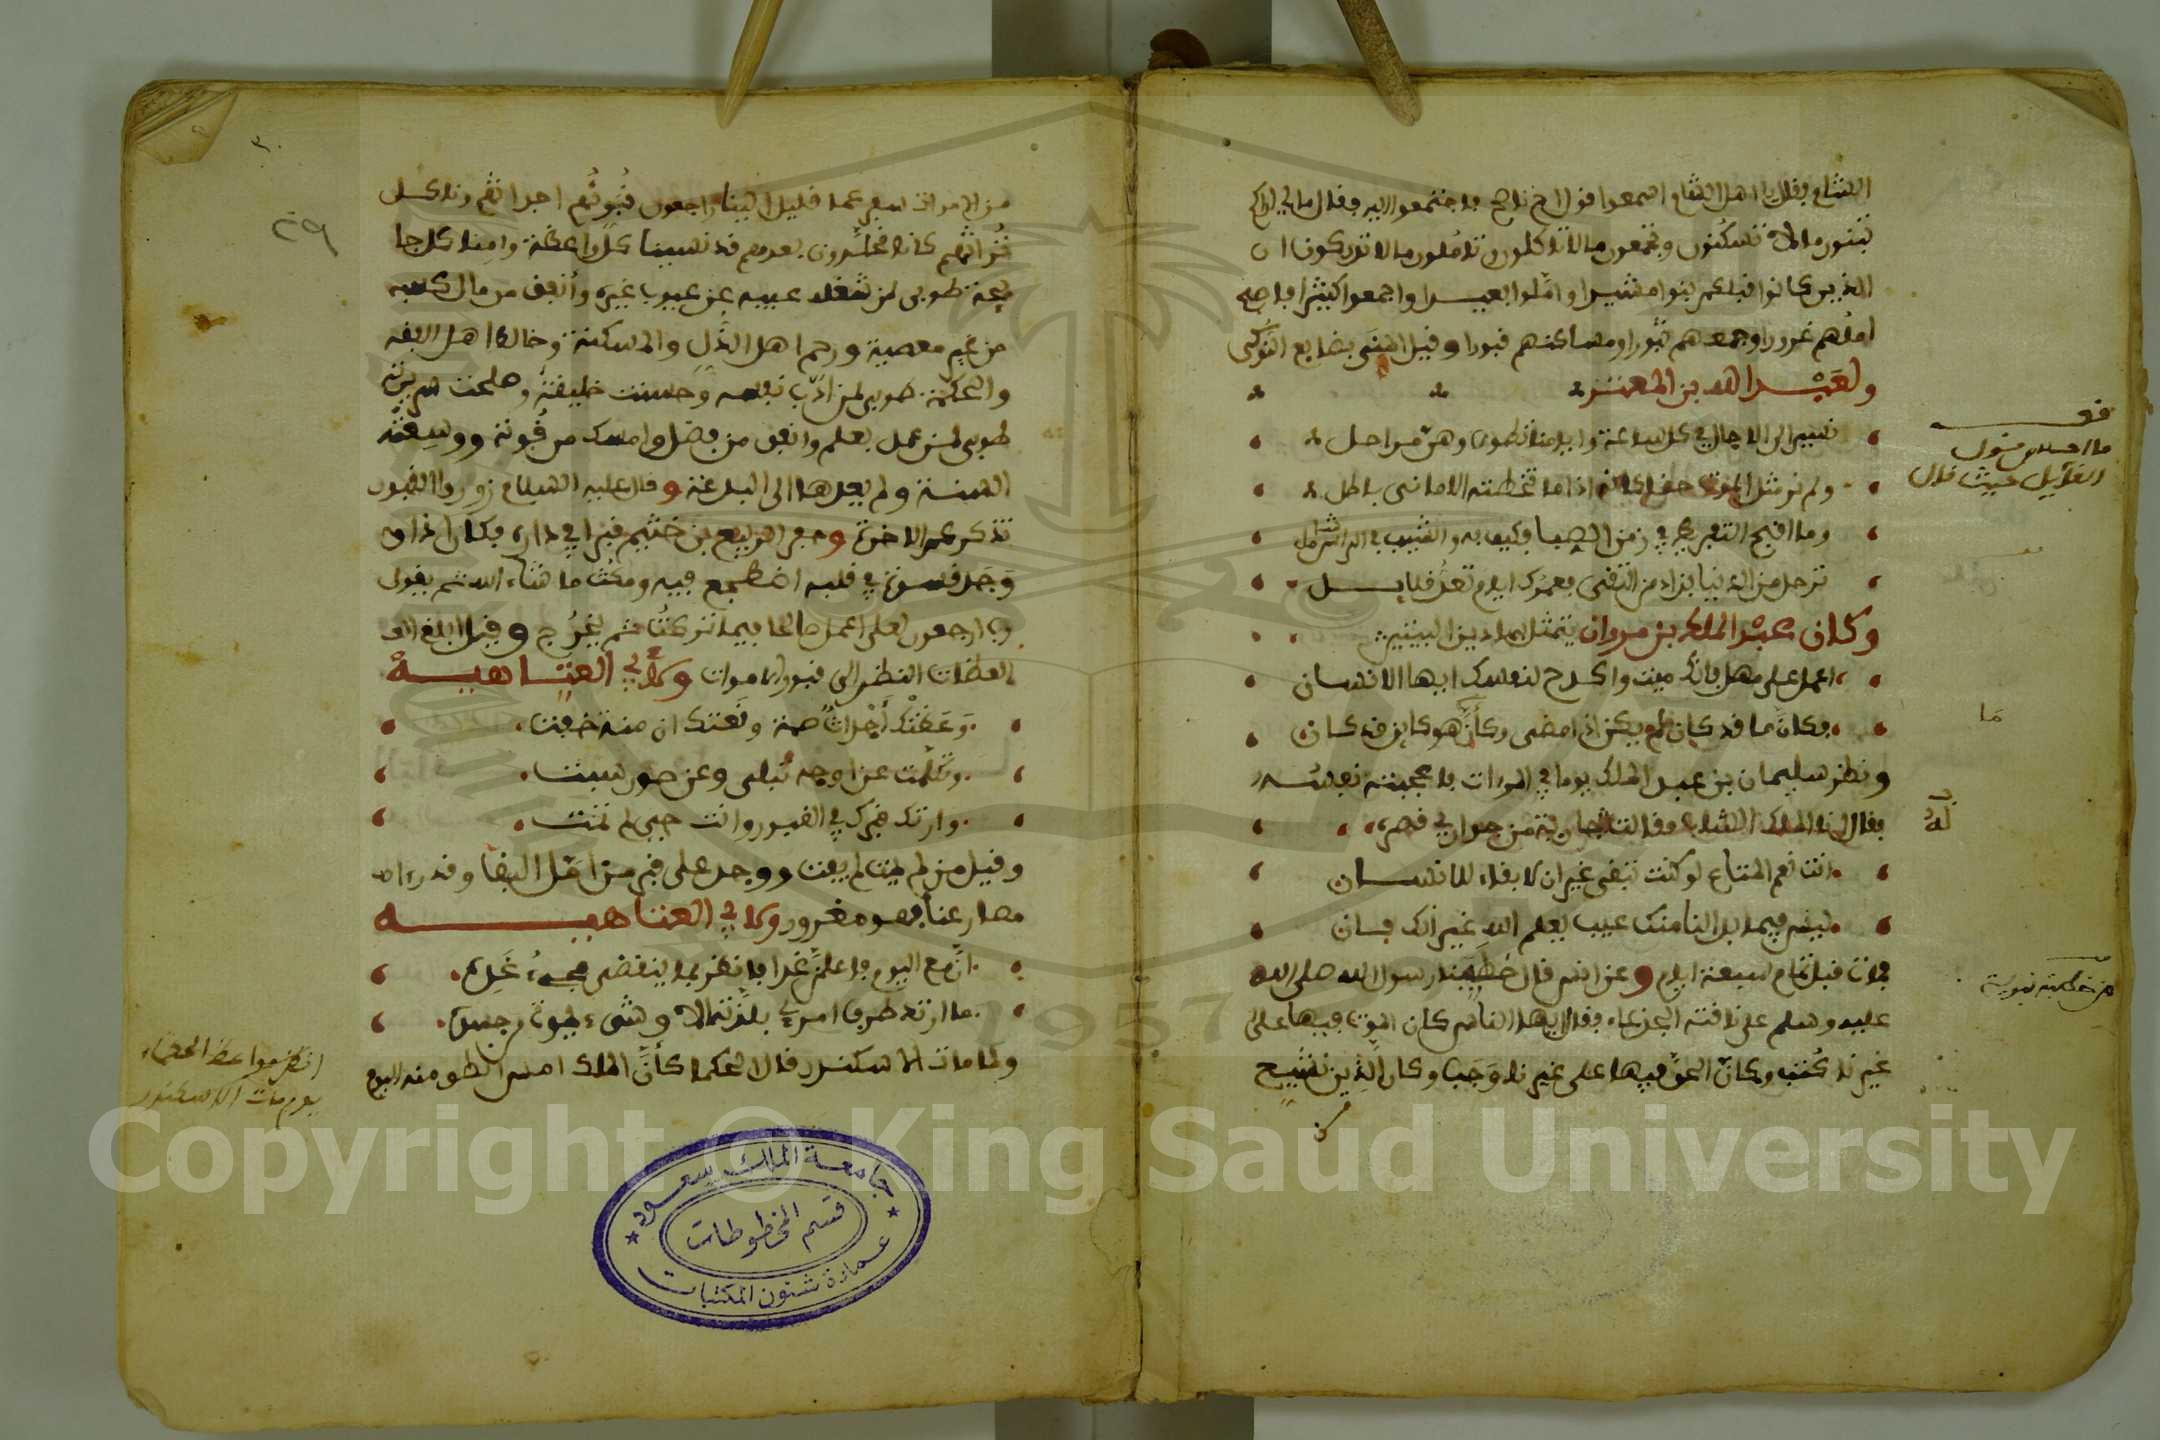 الشام فقال يا اهل الشام اسمعوا قول اخ ناصح فاجتمعوا اليه فقال ما لي اراكم
تبنون ما لا تسكنون وتجمعون ما لا تاكلون وتاملون ما لا تدركون ان
الذين كانوا قبلكم بنوا مشيدا واملوا بعيدا واجمعوا كثيرا فاصبح
املهم غرورا وجمعهم بورا ومساكنهم قبورا وقيل المنى بضايع النوكى
ولعبد الله بن المعتز
نسير الى الاجال في كل ساعة وايامنا تطوى وهن مراحل
ولم نر مثل الموت حقا كانه اذا ما تخطته الاماني باطل
وما اقبح التفريط في زمن الصبا فكيف به والشيب في الراس شامل
ترحل من الدنيا بزاد من التقى فعمرك ايام تعد قلايل
وكان عبد الملك بن مروان يتمثل بهاذين البيتين
اعمل على مهل فانك ميت واكدح لنفسك ايها الانسان
فكان ما قد كان لم يكن اذ امضى وكأن هو كاين قد كان
ونظر سليمان بن عبد الملك يوما في المرءات فاعجبته نفسه
فقال انا الملك الشاب وقالت جارية من جوار في قصره
انت نعم المتاع لو كنت تبقى غير ان لا بقاء للانسان
ليس فيما بدا لنا منك عيب يعلم الله غير انك فان
فمات قبل تمام سبعة ايام وعن انس قال خطبنا رسول الله صلى الله
عليه وسلم على ناقته الجزعاء فقال ايها الناس كان الموت فيها على
غيرنا كتب وكان الحق فيها على غيرنا وجب وكان الذين نشيع
ما احسن قول
القايل حيث قال
ما
له
من خطبة نبوية
٣٠
٢٩
من الاموات سفر عما قليل الينا راجعون نبوئهم اجداثهم وناكل
تراثهم كانا مخلدون بعدهم قد نسينا كل واعظة وامنا كل جا
يحة طوبى لمن شغله عيبه عن عيوب غيره وانفق من مال كسبه
من غير معصية ورحم اهل الذل والمسكنة وخالط اهل الفقه
والحكمة طوبى لمن ادب نفسه وحسنت خليقته وصلحت سريرته
طوبى لمن عمل بعلم وانفق من فضل وامسك من قوته ووسعته
السنة ولم يعدها الى البدعة وقال عليه السلام زوروا القبور
تذكركم الاخرة وحفر الربيع بن خثيم قبرا في داره فكان اذا
وجد قسوة في قلبه اضطجع فيه ومكث ما شاء الله ثم يقول
رب ارجعون لعلى اعمل صالحا فيما تركت ثم يخرج وقيل ابلغ
العظات النظر الى قبور الاموات ولابي العتاهية
وعظتك اجداث صمت ونعتك ازمنة خفت
وتكلمت عن اوجه تبلى وعن صور سبت
وارتك قبرك في القبور وانت حي لم تمت
وقيل من لم يمت لم يفت ووجد على قبر من امل البقا وقد راى
مصارعنا فهو مغرور ولابي العتاهية
ولما مات الاسكندر قال الحكما كأن الملك امس انطق منه اليوم
انظر مواعظ الحكماء
يوم مات الاسكندر
جامعة الملك سعود
قسم المخطوطات
عمادة شئون المكتبات
1957
Copyright © King Saud University